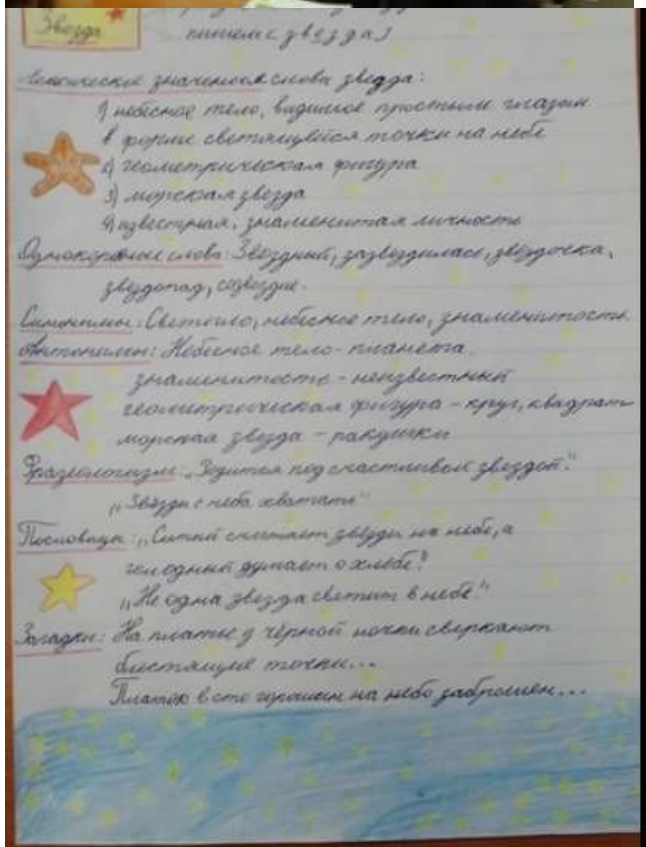 Звезда
пишем с звезда)
Лексическое значение слова звезда:
1) небесное тело, видимое простым глазом
в форме светящейся точки на небе
2) геометрическая фигура
3) морская звезда
4) известная, знаменитая личность
Однокоренные слова: Звездный, зазвездилась, звездочка,
звездопад, созвездие.
Синонимы: Светило, небесное тело, знаменитость.
Антонимы: Небесное тело - планета.
знаменитость - неизвестный
геометрическая фигура - круг, квадрат
морская звезда - ракушки
Фразеологизм: „Родится под счастливой звездой."
„Звёзды с неба хватать"
Пословица: „Сытый считает звёзды на небе, а
голодный думает о хлебе."
„Не одна звезда светит в небе."
Загадки: На платье у чёрной ночки сверкают
блестящие точки...
Платок в сто горошин на небо заброшен...